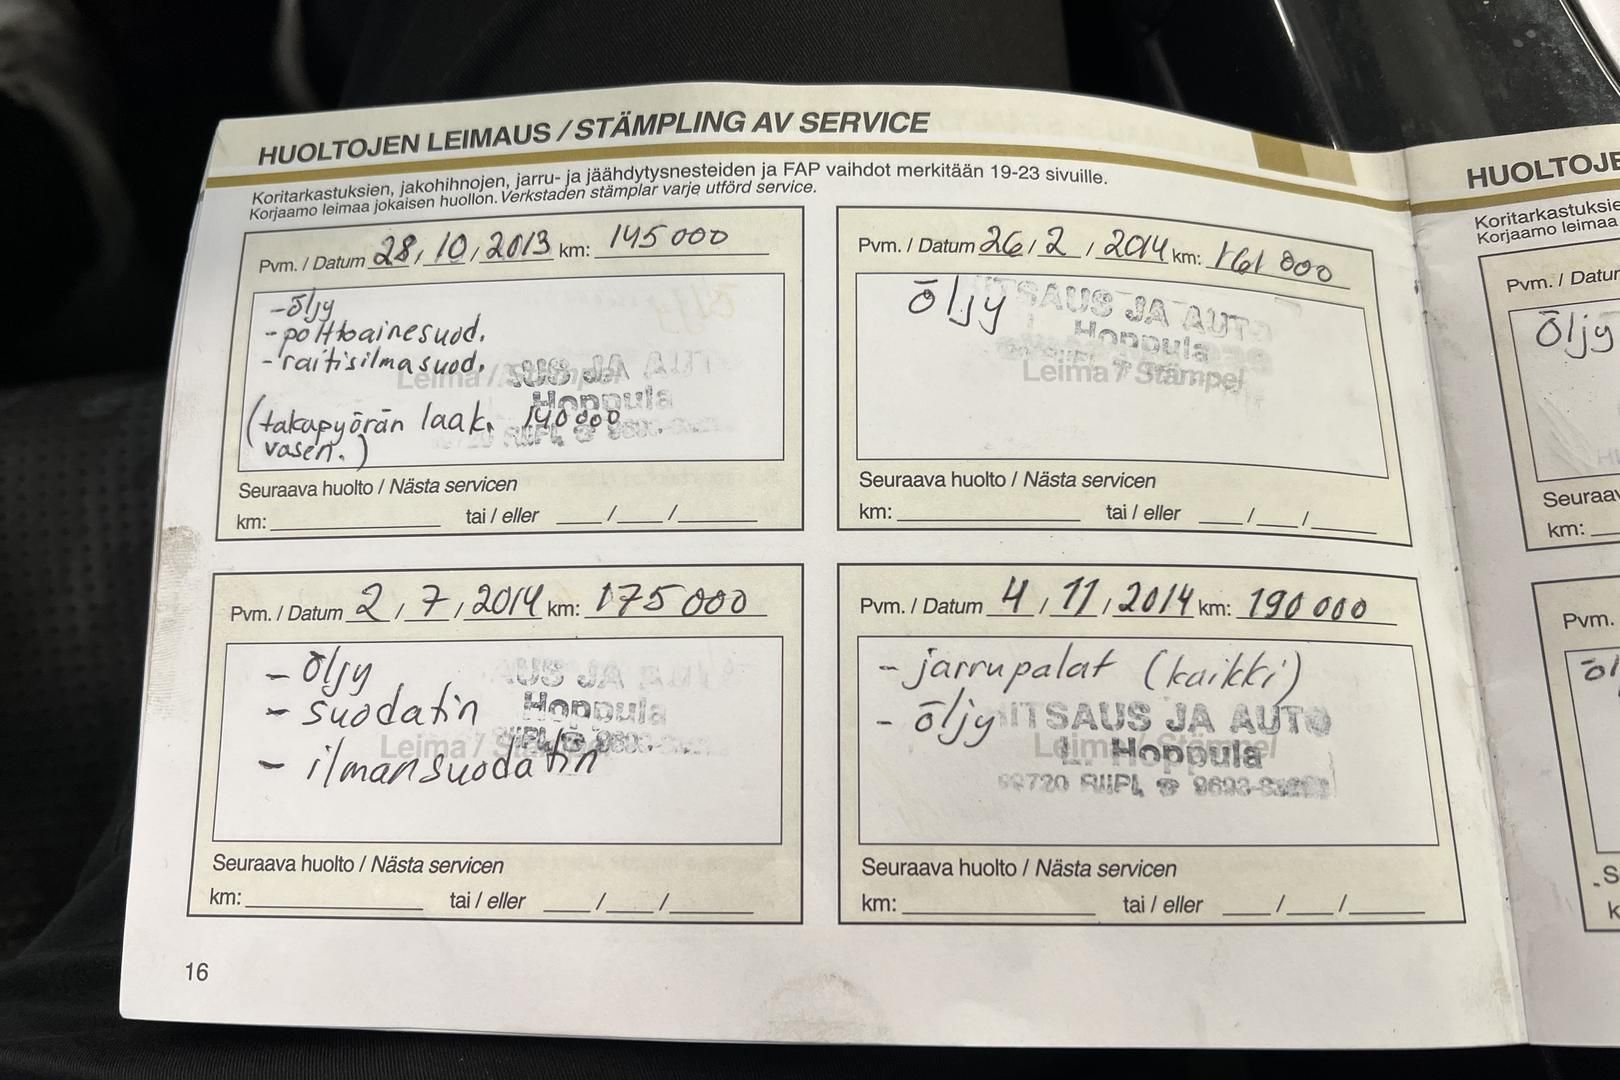 HUOLTOJEN LEIMAUS / STÄMPLING AV SERVICE
Koritarkastuksien, jakohihnojen, jarru- ja jäähdytysnesteiden ja FAP vaihdot merkitään 19-23 sivuille.
Korjaamo leimaa jokaisen huollon. Verkstaden stämplar varje utförd service.
Pvm. / Datum 28 / 10 / 2013 km: 145 000
- öljy
- polttoainesuod.
- raitisilmasuod.
Leima /
SUS JA AUT
Hoppula
(takapyörän laak. 140000
vasen.)
Seuraava huolto / Nästa servicen
km: tai / eller / /
Pvm. / Datum 26 / 2 / 2014 km: 161 000
öljy
ITSAUS JA AUTO
Hoppula
Leima / Stämpel
Seuraava huolto / Nästa servicen
km: tai / eller / /
Pvm. / Datum 2 / 7 / 2014 km: 175 000
- öljy
- suodatin
- ilmansuodatin
AUS JA AUT
Hoppula
Leima /
Seuraava huolto / Nästa servicen
km: tai / eller / /
Pvm. / Datum 4 / 11 / 2014 km: 190 000
- jarrupalat (kaikki)
- öljy
ITSAUS JA AUTO
L. Hoppula
Leima / Stämpel
Seuraava huolto / Nästa servicen
km: tai / eller / /
16
HUOLTOJE
Koritarkastuksie
Korjaamo leimaa
Pvm. / Datum
öljy
Seuraav
km:
Pvm.
öl